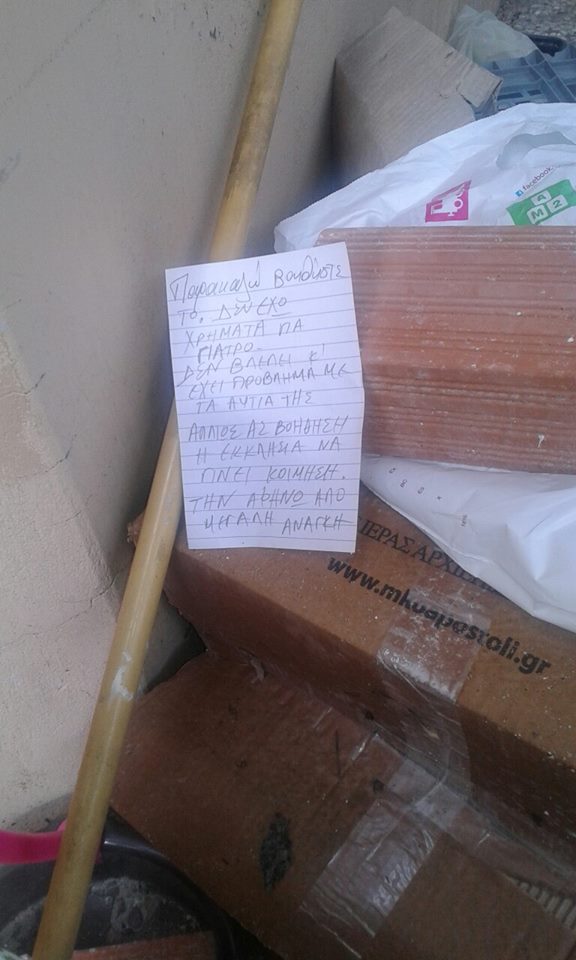 facebook.
A
M2
Παρακαλώ Βοηθύστε
ΤΟ. ΔΕΝ ΕΧΟ
ΧΡΗΜΑΤΑ ΓΙΑ
ΓΙΑΤΡΟ.
ΔΕΝ ΒΛΕΠΕΙ ΚΙ
ΕΧΕΙ ΠΡΟΒΛΗΜΑ ΜΕ
ΤΑ ΑΥΤΙΑ ΤΗΣ
ΑΛΛΙΟΣ ΑΣ ΒΟΗΘΗΣΗ
Η ΕΚΚΛΗΣΙΑ ΝΑ
ΓΙΝΕΙ ΚΟΙΜΗΣΗ.
ΤΗΝ ΑΦΗΝΩ ΑΠΟ
ΜΕΓΑΛΗ ΑΝΑΓΚΗ
ΙΕΡΑΣ
www.mkoapostoli.gr